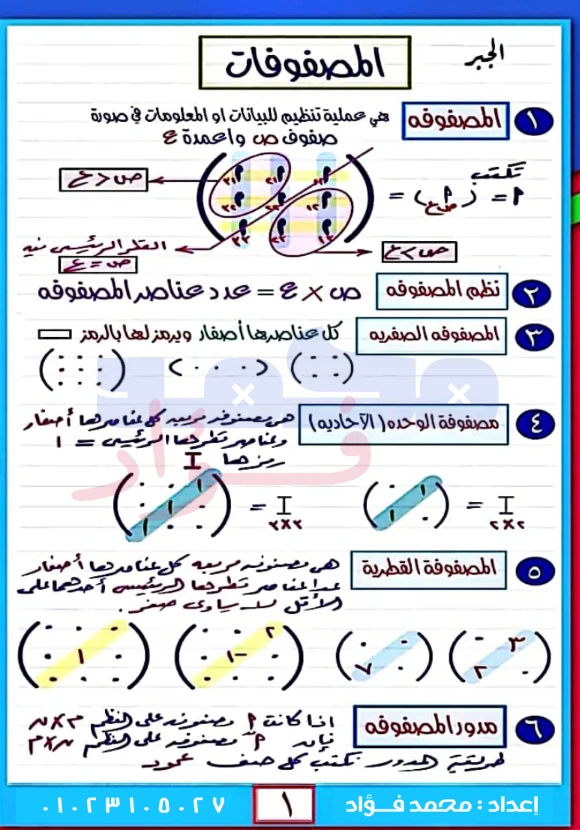 الجبر
المصفوفات
١ المصفوفه هي عملية تنظيم للبيانات او المعلومات في صورة
صفوف ص واعمدة ع
تكتب
أ = (أ ص ع) =
ص > ع
ص < ع
القطر الرئيسى فيه
ص = ع
٢ نظم المصفوفه ص × ع = عدد عناصر المصفوفه
٣ المصفوفه الصفريه كل عناصرها أصفار ويرمز لها بالرمز
٤ مصفوفة الوحده (الآحاديه) هى مصفوفه مربعه كل عناصرها أصفار
وعناصر قطرها الرئيسى = ١
رمزها I
I ٢×٢ =
I ٣×٣ =
٥ المصفوفة القطرية هى مصفوفه مربعه كل عناصرها أصفار
عدا عناصر قطرها الرئيسى أحدهما على
الأقل لا يساوى صفر .
٣ ٢
٧
٢ ١-
١
٦ مدور المصفوفه اذا كانت أ مصفوفه على النظم م×ن
فإن أ مصفوفه على النظم ن×م
طريقة المدور نكتب كل صف عمود
إعداد : محمد فــؤاد
١
٠١٠٢٣١٠٥٠٢٧
محمد
فـؤاد